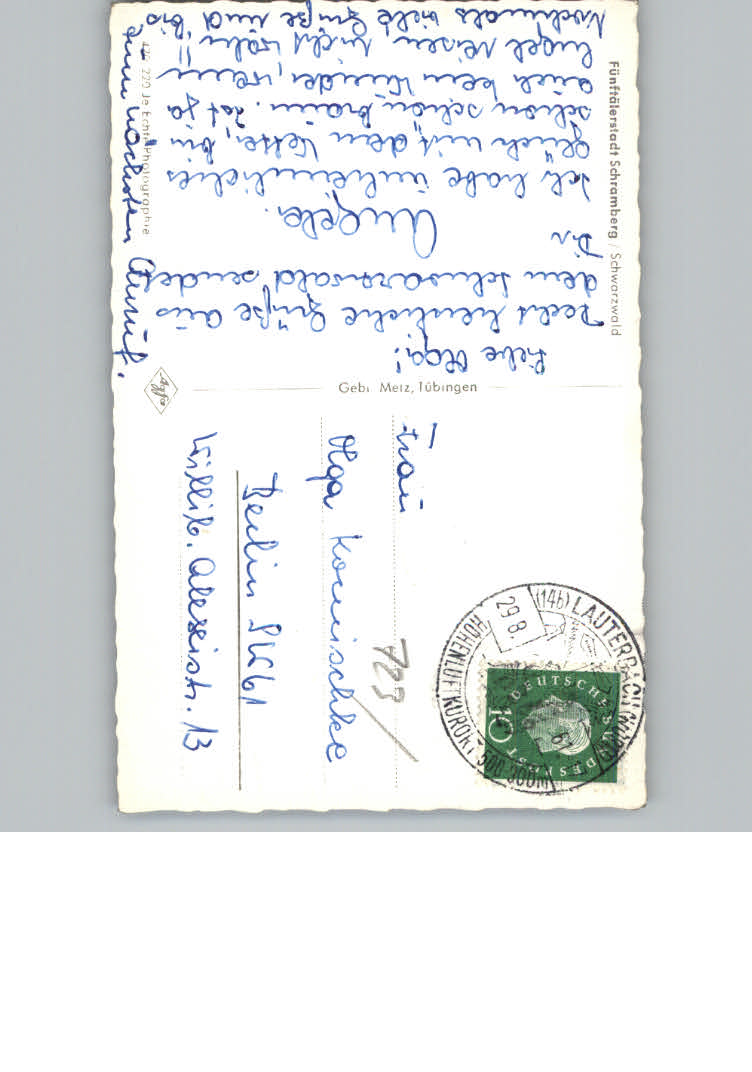 Fünftälerstadt Schramberg / Schwarzwald
Liebe Olga!
Recht herzliche Grüße aus
dem Schwarzwald sendet
Dir
Angela.
Ich habe unheimliches
Glück mit dem Wetter, bin
schon schön braun. Ist ja
auch kein Wunder, wenn
Engel reisen, nicht wahr!!
Nochmals viele Grüße und bis
zum nächsten Anruf.
229 Je Echte Photographie
Gebr. Metz, Tübingen
Agfa
Frau
Olga
Berlin SW 61
Willib. Alexisstr. 13
723
(14b) LAUTERBACH
HÖHENLUFTKURORT
29.8.
61
DEUTSCHE BUNDESPOST
10